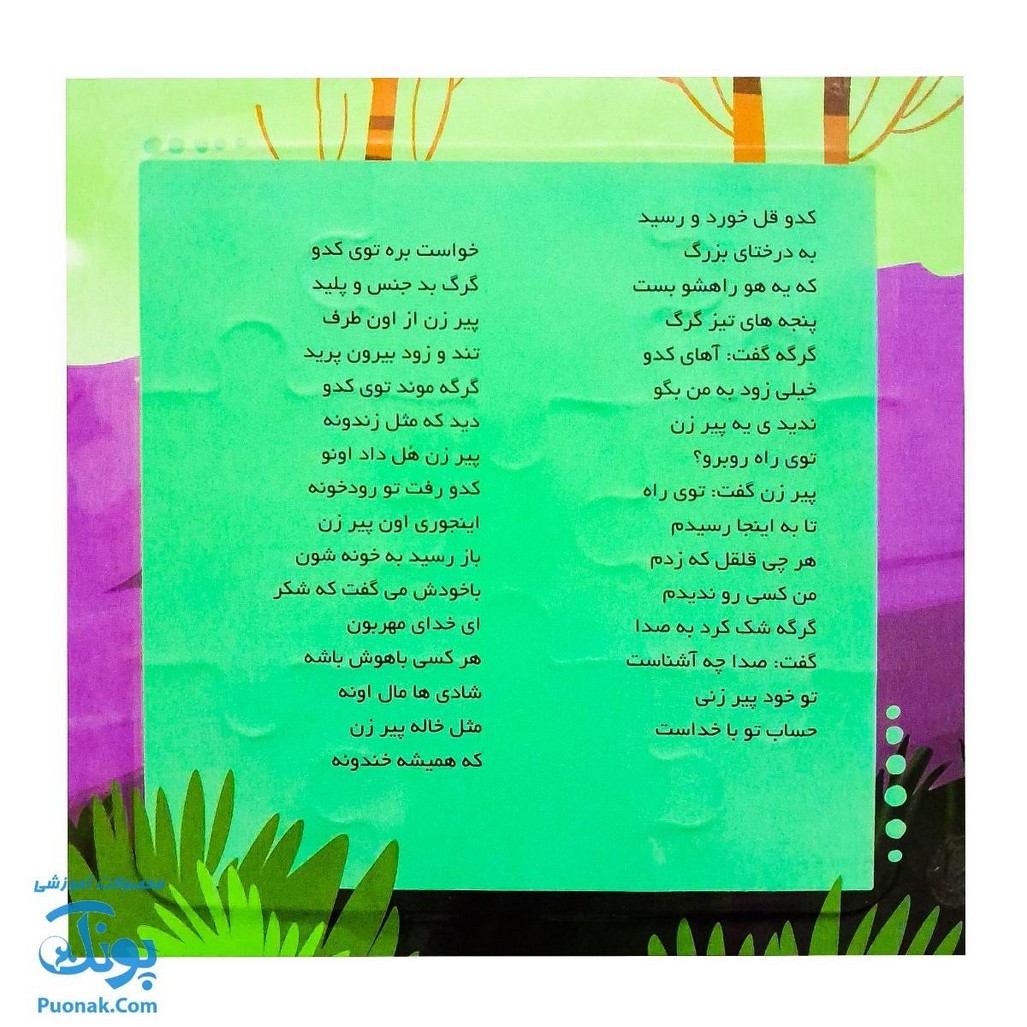 کدو قل خورد و رسید
به درختای بزرگ
که یه هو راهشو بست
پنجه های تیز گرگ
گرگه گفت: آهای کدو
خیلی زود به من بگو
ندید ی یه پیر زن
توی راه روبرو؟
پیر زن گفت: توی راه
تا به اینجا رسیدم
هر چی قلقل که زدم
من کسی رو ندیدم
گرگه شک کرد به صدا
گفت: صدا چه آشناست
تو خود پیر زنی
حساب تو با خداست
خواست بره توی کدو
گرگ بد جنس و پلید
پیر زن از اون طرف
تند و زود بیرون پرید
گرگه موند توی کدو
دید که مثل زندونه
پیر زن هُل داد اونو
کدو رفت تو رودخونه
اینجوری اون پیر زن
باز رسید به خونه شون
باخودش می گفت که شکر
ای خدای مهربون
هر کسی باهوش باشه
شادی ها مال اونه
مثل خاله پیر زن
که همیشه خندونه
محصولات آموزشی
پونک
Puonak.Com